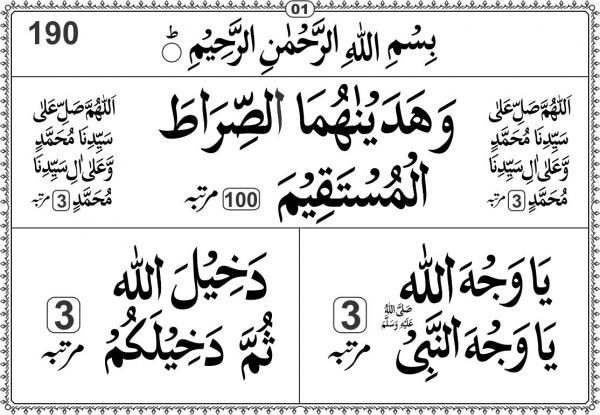 01
190
بِسْمِ اللهِ الرَّحْمٰنِ الرَّحِيْمِ ۝ ط
اَللّٰهُمَّ صَلِّ عَلٰى
سَيِّدِنَا مُحَمَّدٍ
وَّعَلٰى اٰلِ سَيِّدِنَا
مُحَمَّدٍ 3 مرتبہ
وَهَدَيْنٰهُمَا الصِّرَاطَ
الْمُسْتَقِيْمَ 100 مرتبہ
اَللّٰهُمَّ صَلِّ عَلٰى
سَيِّدِنَا مُحَمَّدٍ
وَّعَلٰى اٰلِ سَيِّدِنَا
مُحَمَّدٍ 3 مرتبہ
يَا وَجْهَ الله
يَا وَجْهَ النَّبِىْ صَلَّى اللهُ عَلَيْهِ وَسَلَّم
3 مرتبہ
دَخِيْلَ الله
ثُمَّ دَخِيْلَكُمْ
3 مرتبہ